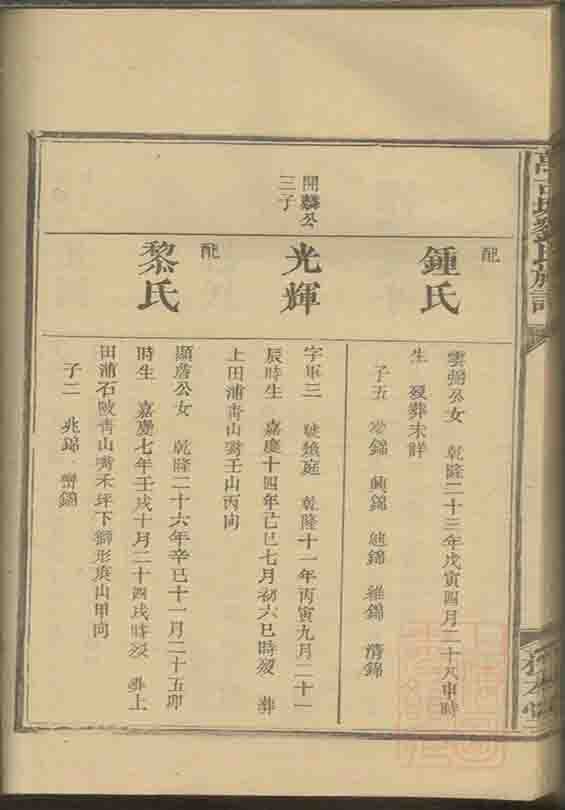 劉氏族譜
配
鍾氏
雲弼公女 乾隆二十三年戊寅四月二十八申時
生 歿葬未詳
子五 錦 興錦 錦 維錦 清錦
開麟公
三子
光輝
字軍三 號 庭 乾隆十一年丙寅九月二十一
辰時生 嘉慶十四年己巳七月初六巳時歿 葬
上田浦青山嘴壬山丙向
配
黎氏
公女 乾隆二十六年辛巳十一月二十五卯
時生 嘉慶七年壬戌十月二十四戌時歿 葬上
田浦石 青山嘴禾坪下獅形庚山甲向
子二 兆錦 錦